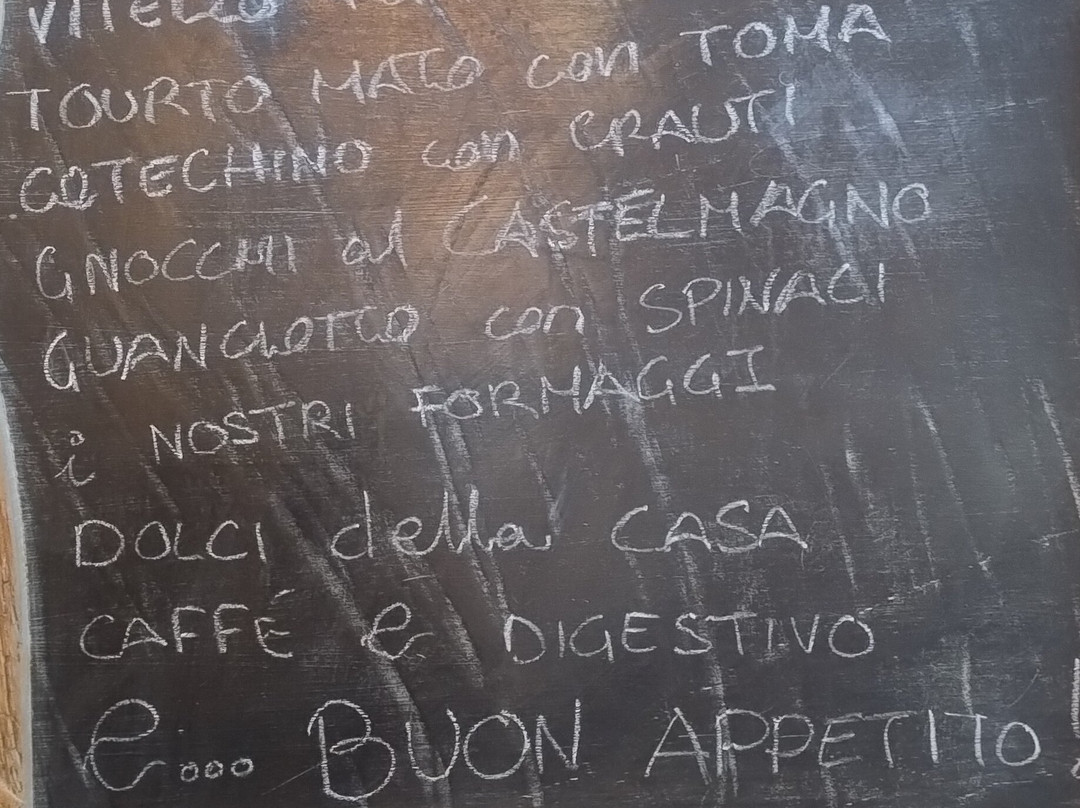 VITELLO
TOURTO MATO con TOMA
COTECHINO con CRAUTI
GNOCCHI al CASTELMAGNO
GUANCIOTTO con SPINACI
i NOSTRI FORMAGGI
DOLCI della CASA
CAFFÉ e DIGESTIVO
e... BUON APPETITO!